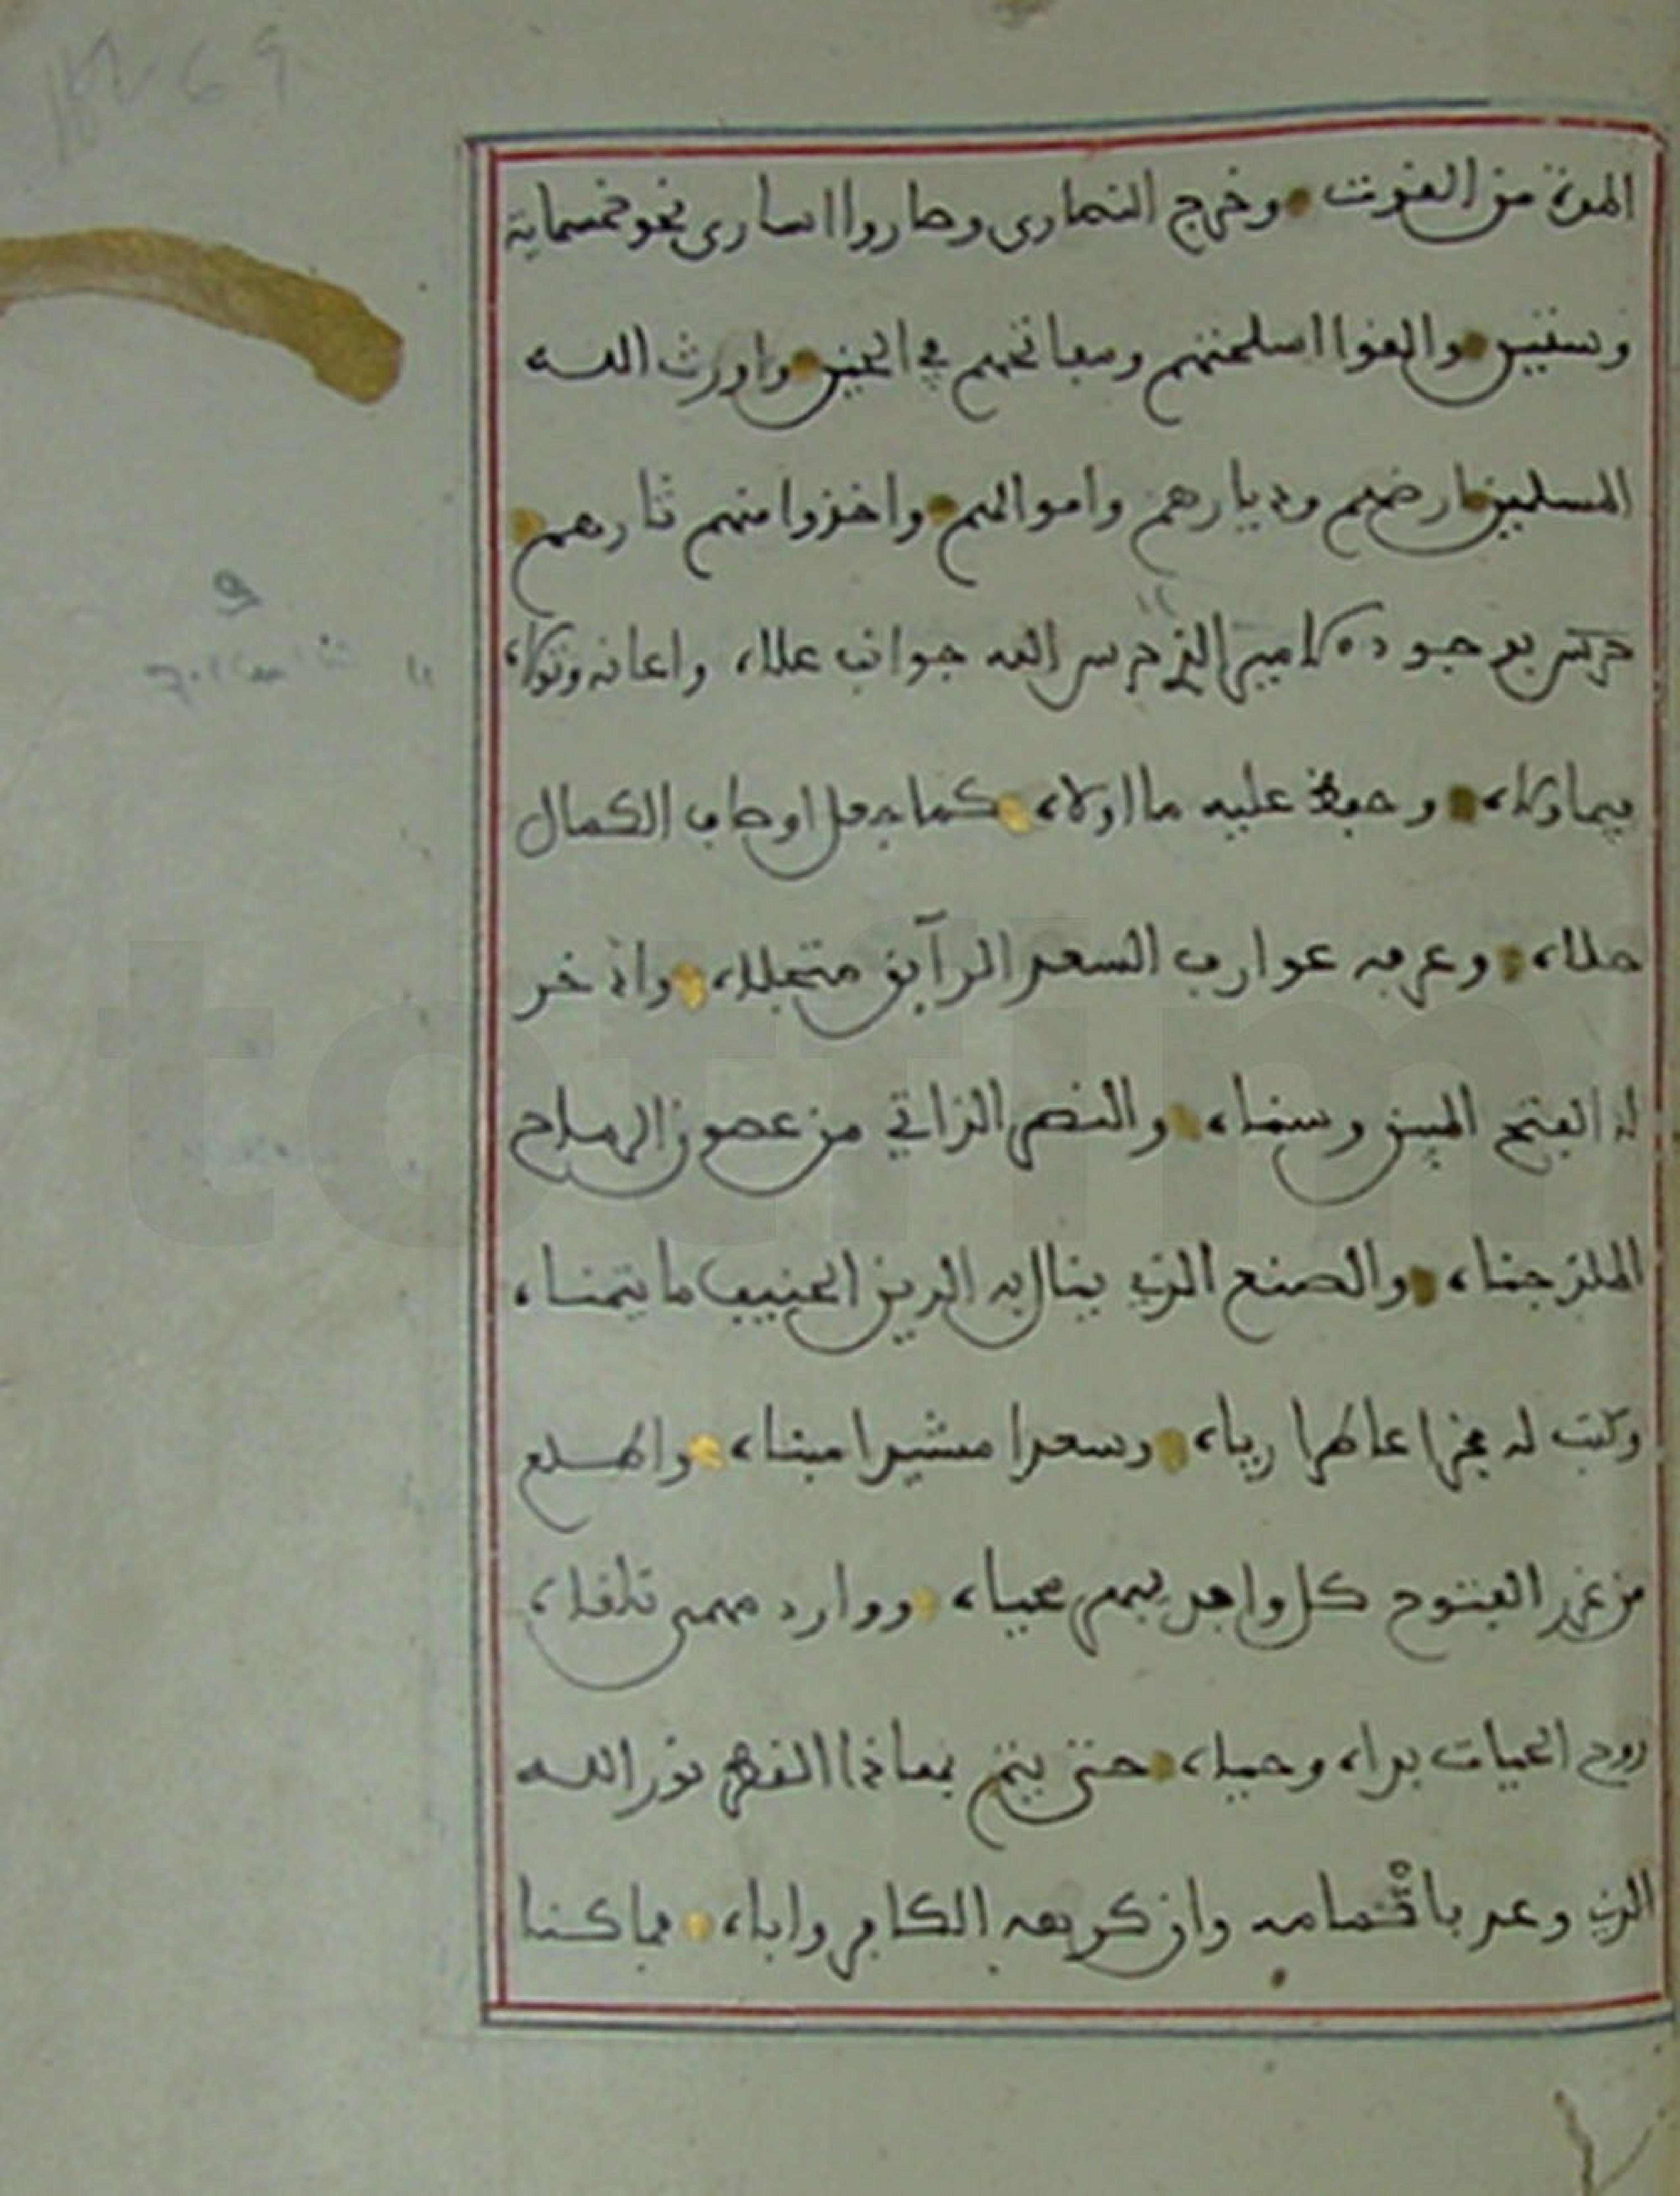 المدة من الفوت وخرج النصارى وصاروا اسارى نحو خمسماية
وستين والفوا اسلحتهم ومفاتحهم في الحين واورث الله
المسلمين ارضهم وديارهم واموالهم واخذوا منهم ثارهم
بوجود الامير الذي حرس الله جوانب علاه واعانه وتولاه
فيما ولاه وحفظ عليه ما اولاه كما جعل اوصاف الكمال
حلاه وعرفه عوارف السعد الرآيق مجتلاه واذخر
له الفتح المبين وسناه والنصر الذاتي من غصون الرماح
الملذ جناه والصنع الذي ينال به الدين الحنيف ما يتمناه
وكتب له فخرا عاطرا رياه وسعدا مشيرا مبناه واطلع
من غرر الفتوح كل واجد يبهر محياه ووارد تلقاه
روح الحيات بداه وحياه حتى يتم بهاذا القطر نور الله
الذي وعد باتمامه وان كرهه الكافر واباه فما كنا
totfim